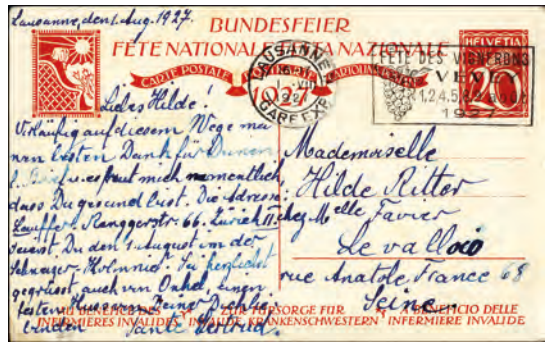 Lausanne, den 1. Aug. 1927.
BUNDESFEIER
FÊTE NATIONALE FESTA NAZIONALE
CARTE POSTALE POSTKARTE CARTOLINA POSTALE
1927
LAUSANNE
1927
GARE EXP.
FÊTE DES VIGNERONS
VEVEY
1927
HELVETIA
40
Liebe Hilde!
Vorläufig auf diesem Wege mei
nen besten Dank für Deinen
l. Brief u. es freut mich
dass Du gesund bist. Die Adresse:
Lauffer, Ranggerstr. 66, Zürich 11.
Du den 1. August in der
Sei herzlichst
gegrüsst auch von Onkel, einen
festen Kuss von Deiner Dich lie
benden Tante Gertrud.
Mademoiselle
Hilde Ritter
chez Melle Favier
Levallois
rue Anatole France 68
Seine
ZU FÜRSORGE FÜR A BENEFICIO DELLE
INFIRMIÈRES INVALIDES INVALIDE KRANKENSCHWESTERN INFERMIERE INVALIDE